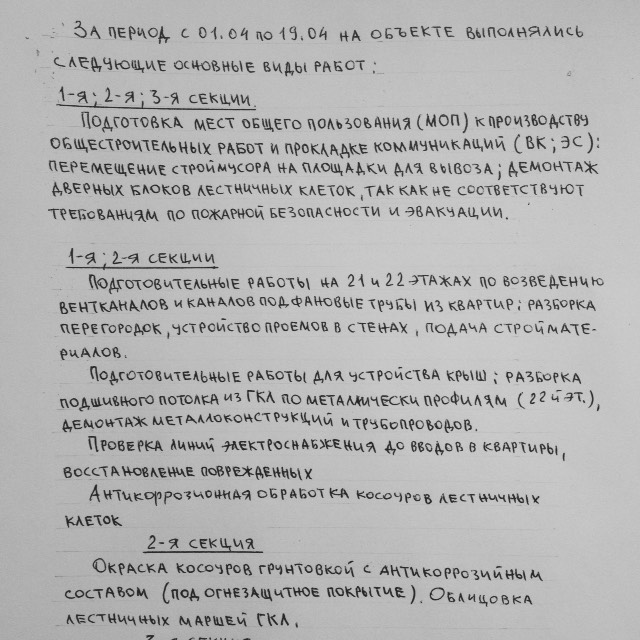 За период с 01.04 по 19.04 на объекте выполнялись
следующие основные виды работ:
1-я; 2-я; 3-я секции.
Подготовка мест общего пользования (МОП) к производству
общестроительных работ и прокладке коммуникаций (ВК; ЭС):
перемещение строймусора на площадки для вывоза; демонтаж
дверных блоков лестничных клеток, так как не соответствуют
требованиям по пожарной безопасности и эвакуации.
1-я; 2-я секции
Подготовительные работы на 21 и 22 этажах по возведению
вентканалов и каналов под фановые трубы из квартир; разборка
перегородок, устройство проемов в стенах, подача строймате-
риалов.
Подготовительные работы для устройства крыш; разборка
подшивного потолка из ГКЛ по металлически профилям (22й эт.),
демонтаж металлоконструкций и трубопроводов.
Проверка линий электроснабжения до вводов в квартиры,
восстановление поврежденных
Антикоррозионная обработка косоуров лестничных
клеток
2-я секция
Окраска косоуров грунтовкой с антикоррозийным
составом (под огнезащитное покрытие). Облицовка
лестничных маршей ГКЛ.
3-я секция